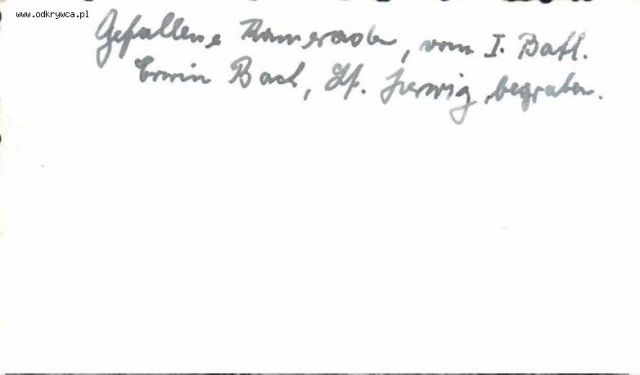 www.odkrywca.pl
Gefallene Kameraden, vom I. Batl.
Erwin Bach, Lt. Herwig begraben.